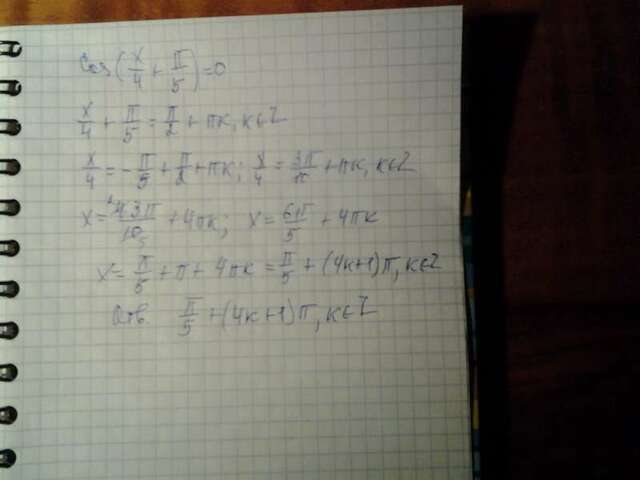 cos(x/4 + π/5) = 0
x/4 + π/5 = π/2 + πк, к∈Z
x/4 = -π/5 + π/2 + πк; x/4 = 3π/10 + πк, к∈Z
x = 4·3π/10 + 4πк; x = 6π/5 + 4πк
x = π/5 + π + 4πк = π/5 + (4к+1)π, к∈Z
Отв. π/5 + (4к+1)π, к∈Z